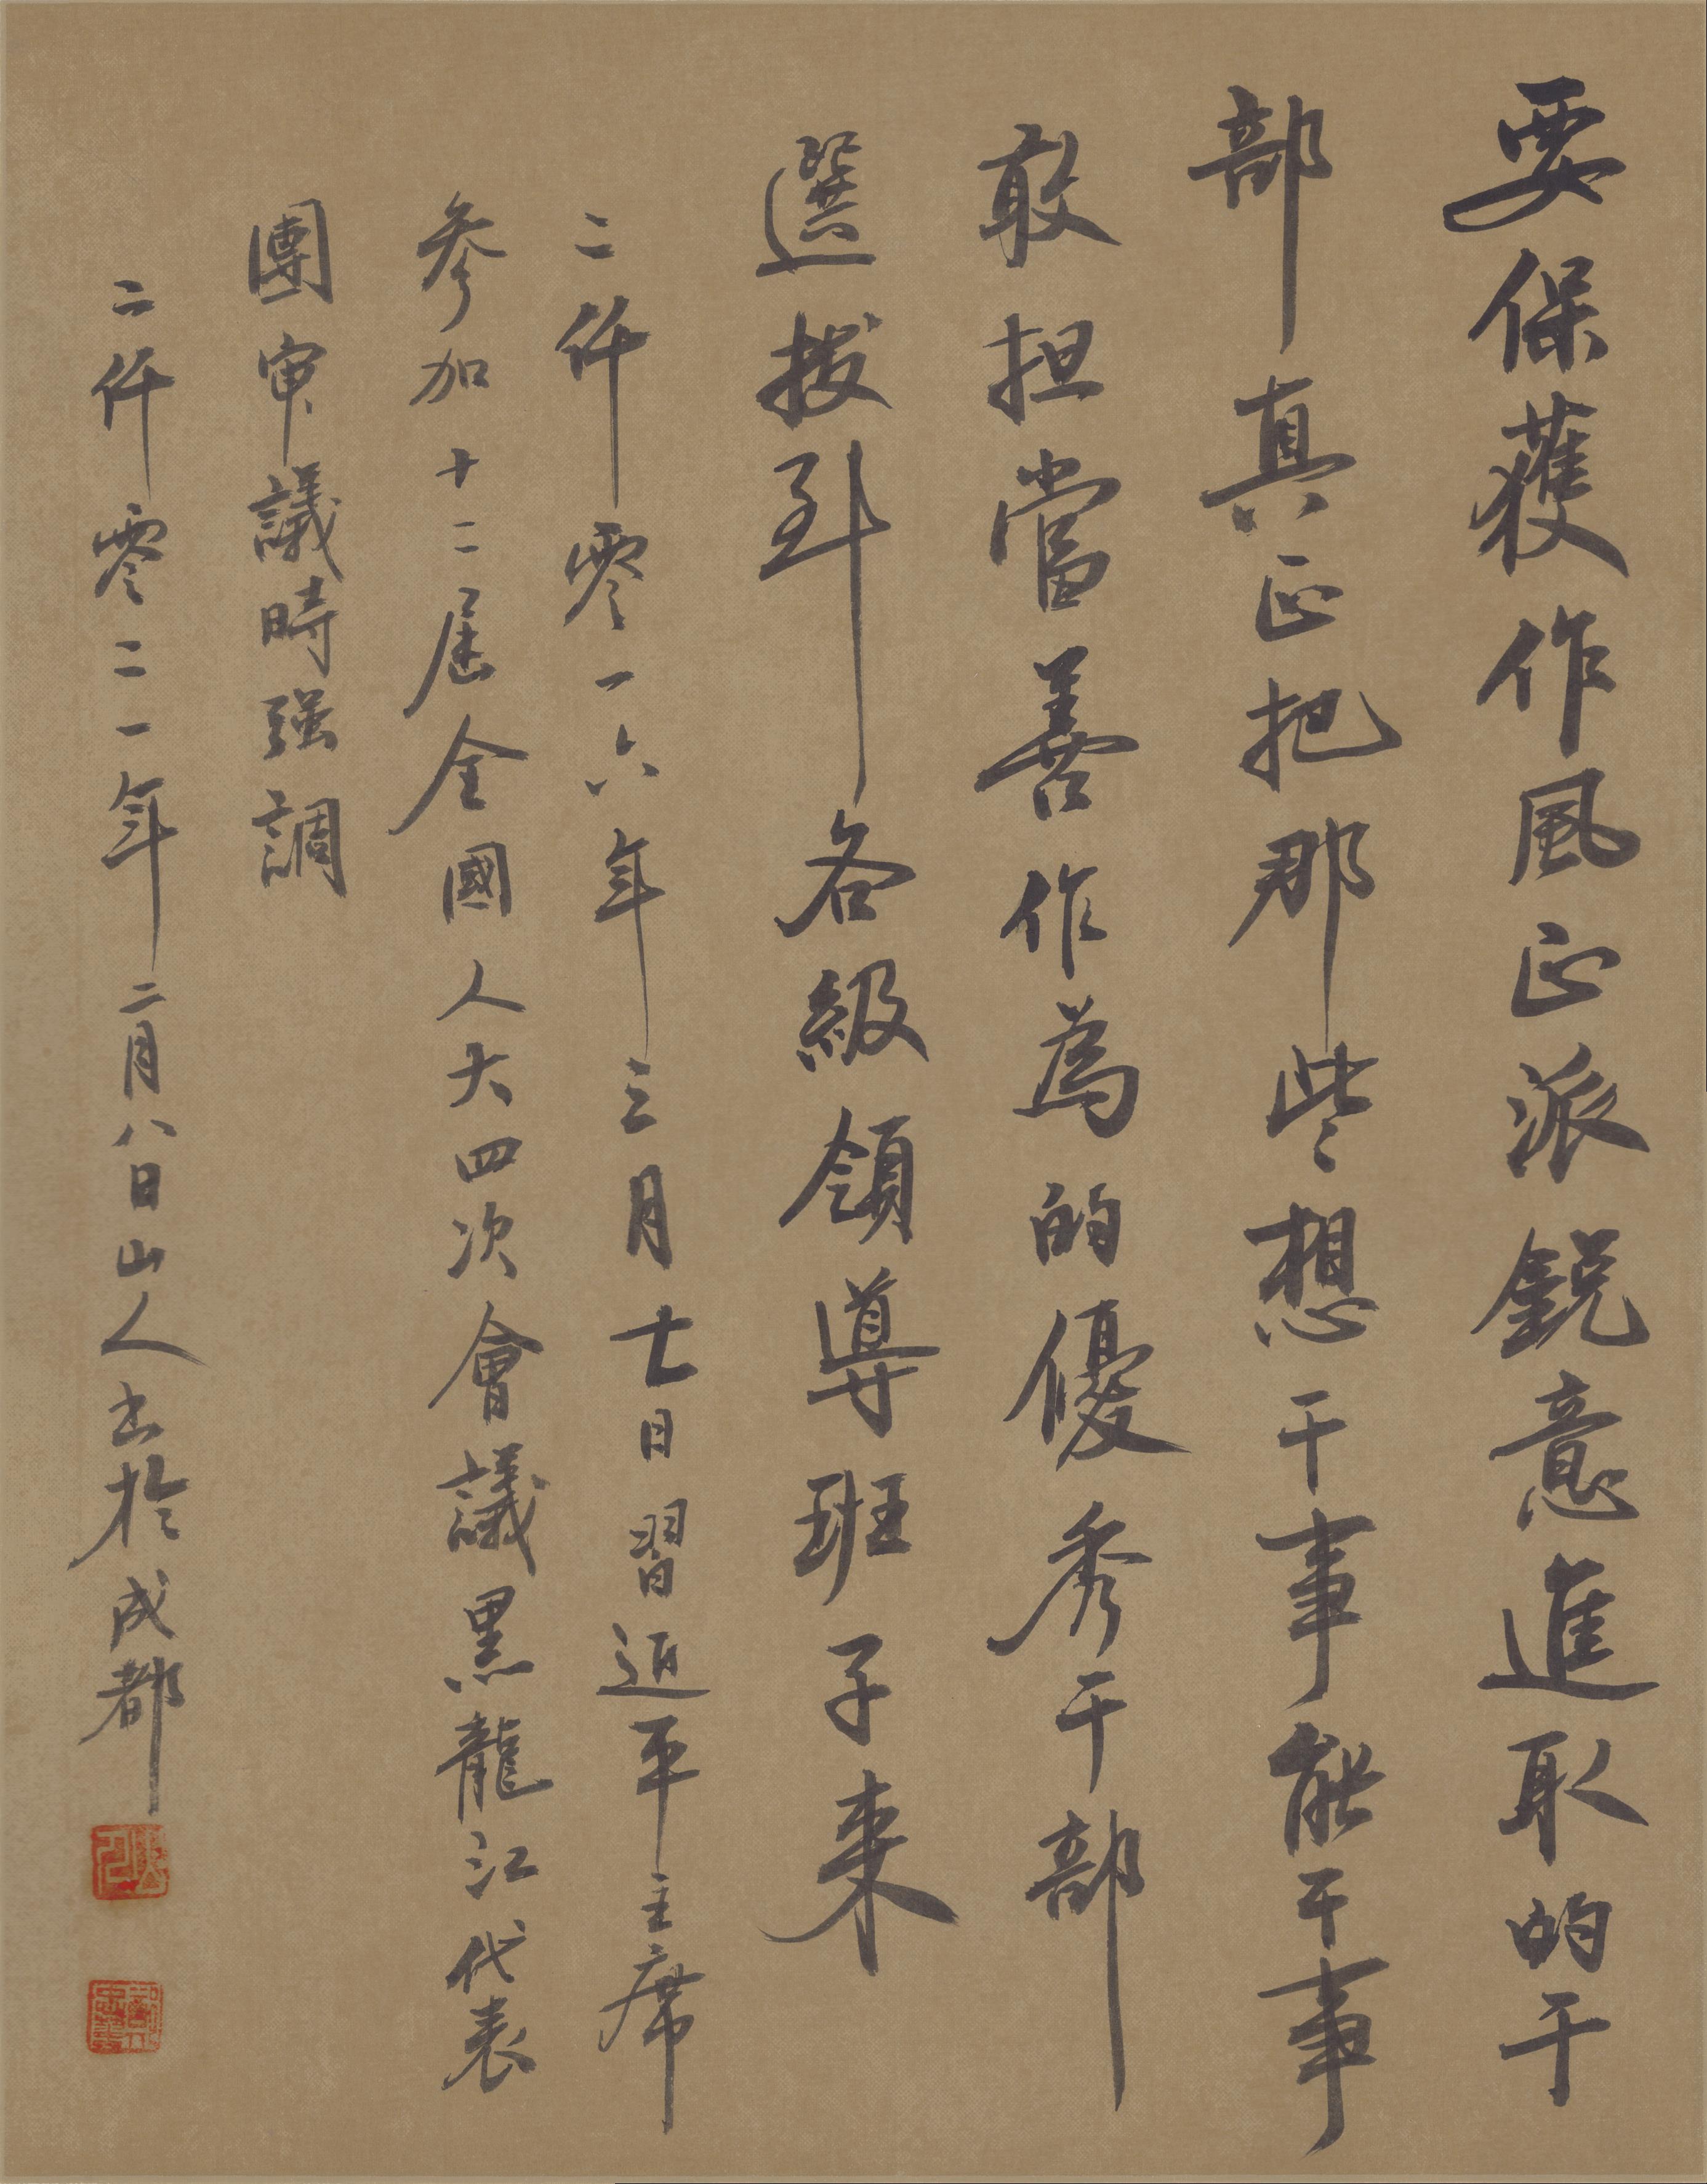 要保獲作風正派鋭意進取的干
部真正把那些想干事能干事
敢担當善作為的優秀干部
選拔到各級領導班子来
二仟零一六年三月七日習近平主席
參加十二届全國人大四次會議黑龍江代表
團审議時强調
二仟零二一年二月八日山人书於成都